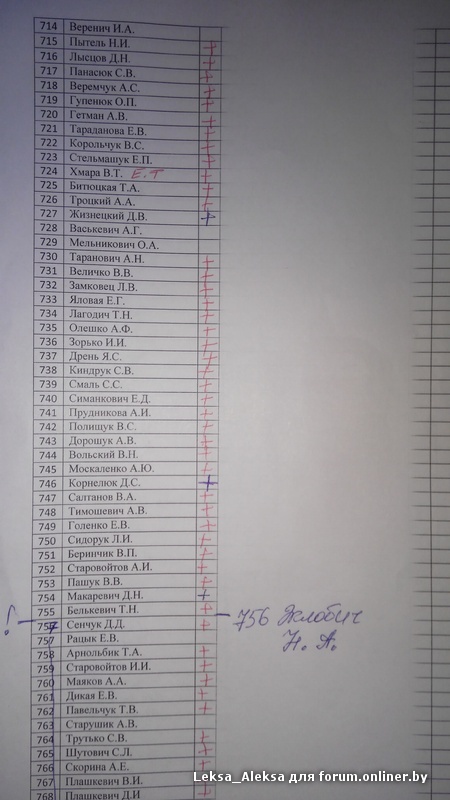 714 Веренич И.А.
715 Пытель Н.И. +
716 Лысцов Д.Н. +
717 Панасюк С.В. +
718 Веремчук А.С. +
719 Гупенюк О.П. +
720 Гетман А.В. +
721 Тараданова Е.В. +
722 Корольчук В.С. +
723 Стельмашук Е.П. +
724 Хмара В.Т. Е.Т +
725 Битюцкая Т.А. +
726 Троцкий А.А. +
727 Жизнецкий Д.В. +
728 Васькевич А.Г.
729 Мельникович О.А.
730 Таранович А.Н. +
731 Величко В.В. +
732 Замковец Л.В. +
733 Яловая Е.Г. +
734 Лагодич Т.Н. +
735 Олешко А.Ф. +
736 Зорько И.И. +
737 Дрень Я.С. +
738 Киндрук С.В. +
739 Смаль С.С. +
740 Симанкович Е.Д. +
741 Прудникова А.И. +
742 Полищук В.С. +
743 Дорошук А.В. +
744 Вольский В.Н. +
745 Москаленко А.Ю. +
746 Корнелюк Д.С. +
747 Салтанов В.А. +
748 Тимошевич А.В. +
749 Голенко Е.В. +
750 Сидорук Л.И. +
751 Беринчик В.П. +
752 Старовойтов А.И. +
753 Пашук В.В. +
754 Макаревич Д.Н. +
755 Белькевич Т.Н. +
! 757 Сенчук Д.Д. + 756 Жлобич
Н. А.
757 Рацык Е.В.
758 Арнольбик Т.А. +
759 Старовойтов И.И. +
760 Маяков А.А. +
761 Дикая Е.В. +
762 Павельчук Т.В. +
763 Старушик А.В.
764 Трутько С.В. +
765 Шутович С.Л. +
766 Скорина А.Е. +
767 Плашкевич В.И. +
768 Плашкевич Д.И +
Leksa_Aleksa для forum.onliner.by